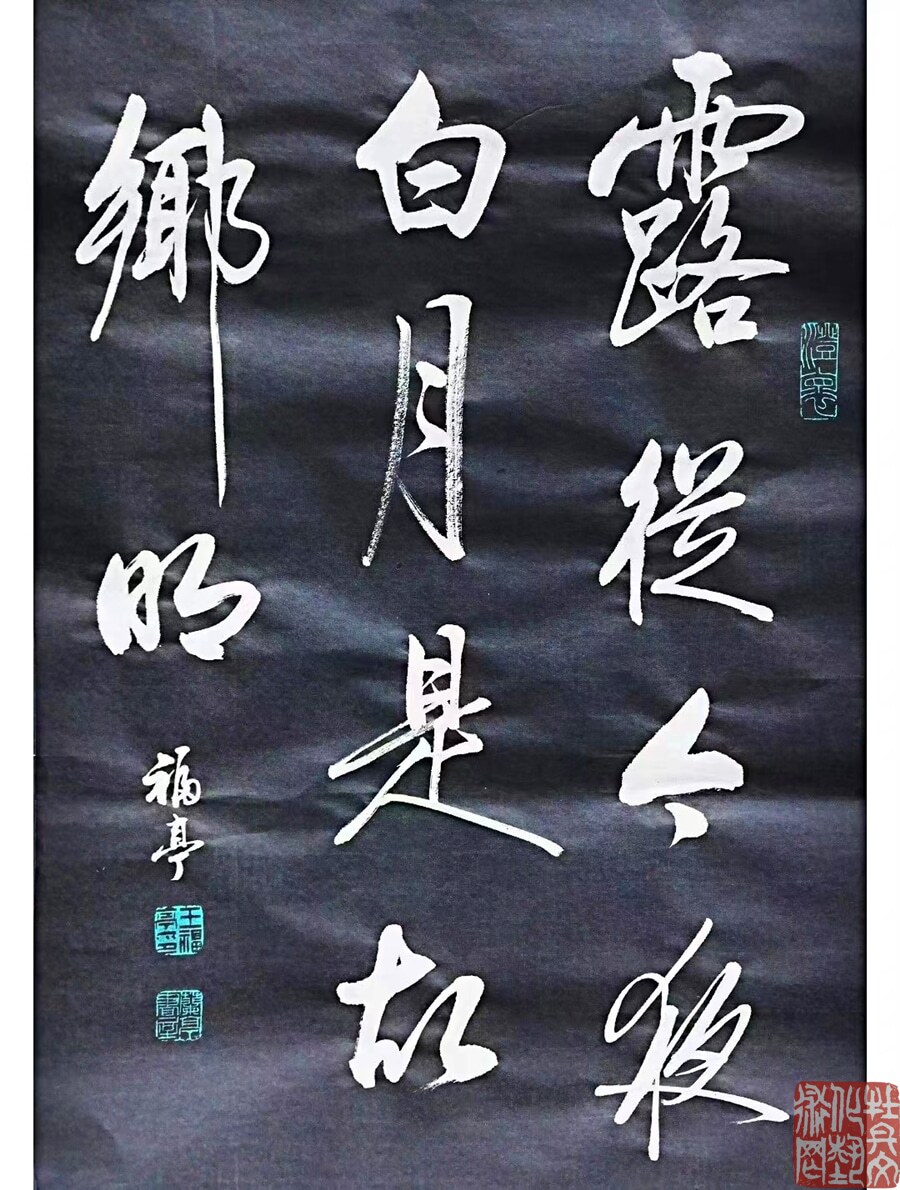 露從今夜
白月是故
鄉明
福亭
王福亭印